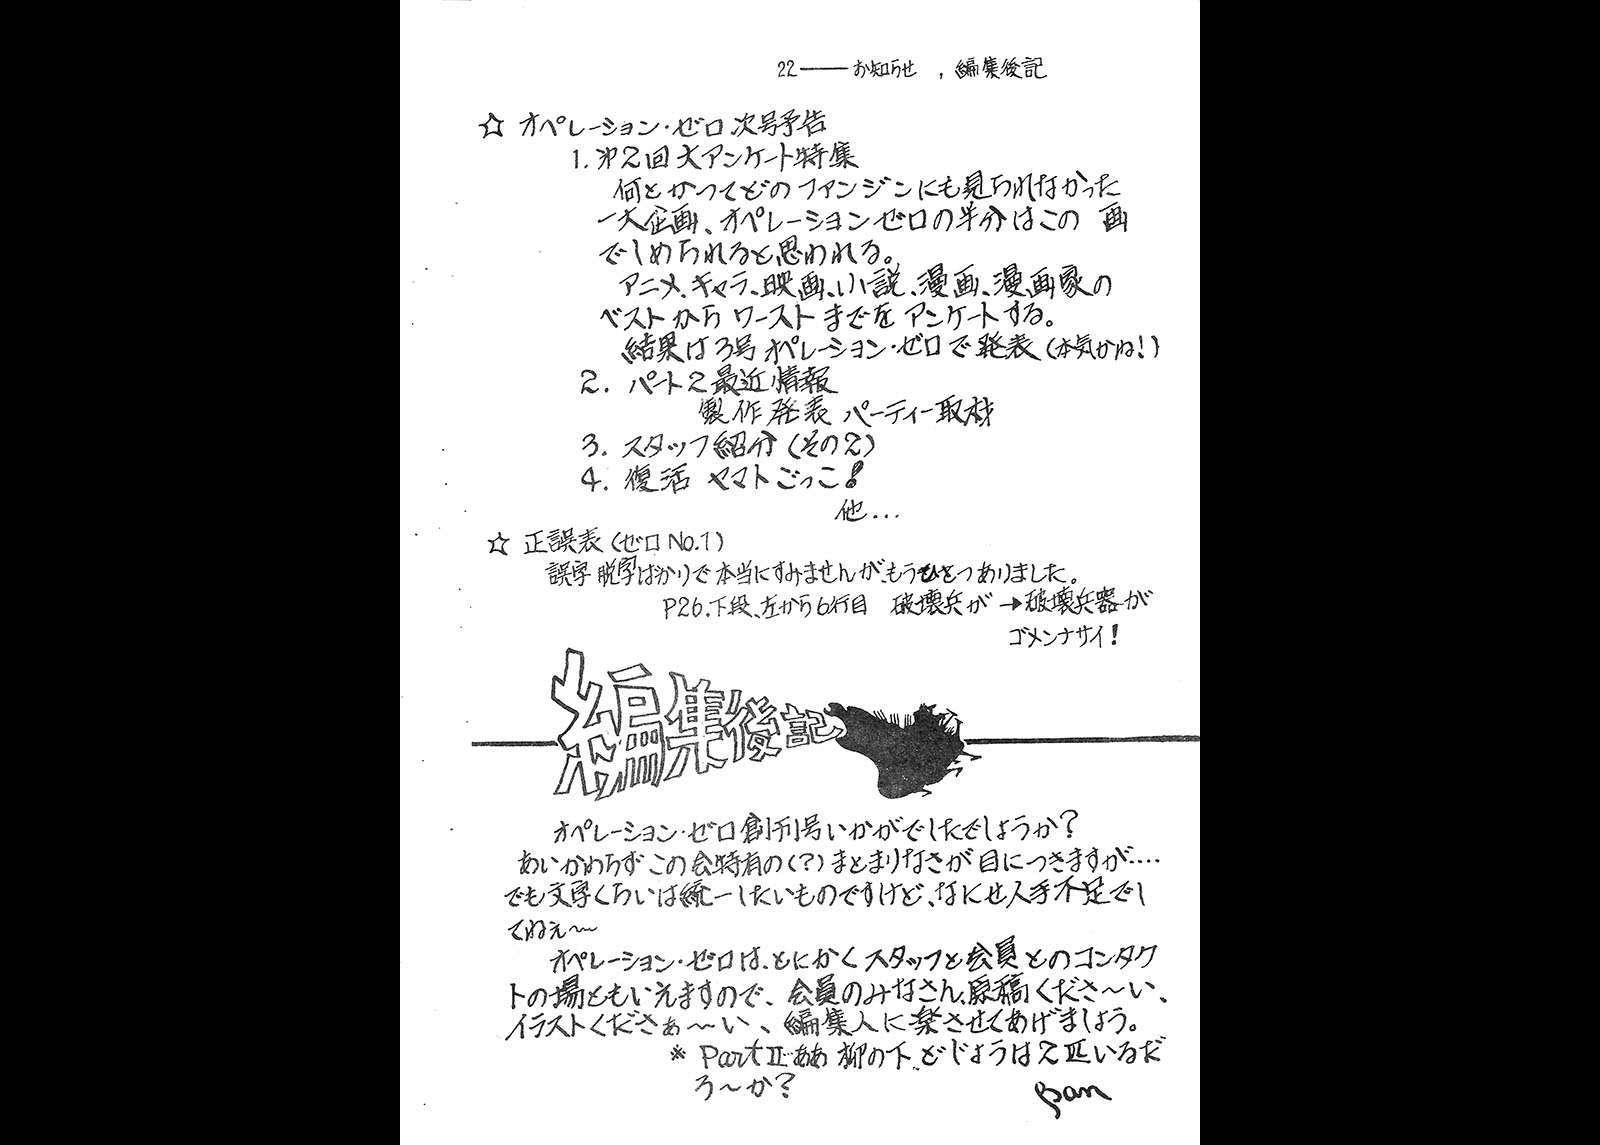 22——お知らせ ,編集後記
☆ オペレーション・ゼロ次号予告
1.第2回大アンケート特集
何とかつてどのファンジンにも見られなかった
一大企画、オペレーションゼロの半分はこの 画
でしめられると思われる。
アニメ、キャラ、映画、小説、漫画、漫画家の
ベストからワーストまでをアンケートする。
結果は3号オペレーション・ゼロで発表(本気かね!)
2. パート2最近情報
製作発表パーティー取材
3. スタッフ紹介(その2)
4. 復活 ヤマトごっこ!
他...
☆ 正誤表(ゼロNo.1)
誤字脱字ばかりで本当にすみませんが、もうひとつありました。
P26.下段、左から6行目 破壊兵が→破壊兵器が
ゴメンナサイ!
編集後記
オペレーション・ゼロ創刊号いかがでしたでしょうか?
あいかわらずこの会特有の(?)まとまりなさが目につきますが....
でも文字くらいは統一したいものですけど、なにせ人手不足でし
てねぇ〜
オペレーション・ゼロは、とにかくスタッフと会員とのコンタク
トの場ともいえますので、会員のみなさん、原稿くださ〜い、
イラストくださぁ〜い、編集人に楽させてあげましょう。
※ PartⅡああ柳の下、どじょうは2匹いるだ
ろ〜か?
Ban